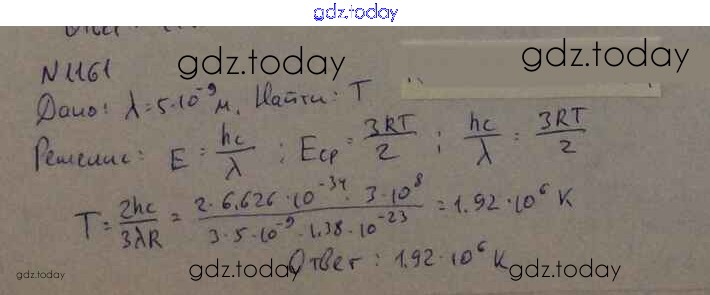 gdz.today
N 1161
gdz.today gdz.today
Дано: λ = 5·10⁻⁹ м. Найти: T
Решение: E = hc/λ ; Eср = 3RT/2 ; hc/λ = 3RT/2
T = 2hc/3λR = 2·6,626·10⁻³⁴·3·10⁸ / 3·5·10⁻⁹·1,38·10⁻²³ = 1,92·10⁶ K
Ответ: 1,92·10⁶ K
gdz.today gdz.today gdz.today